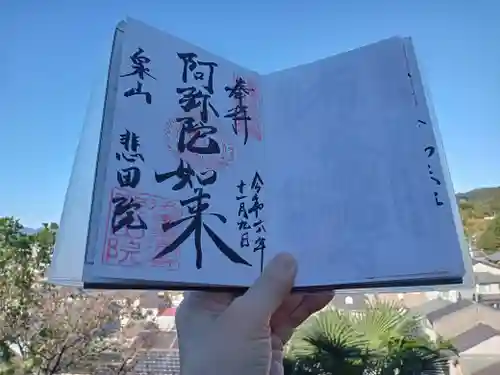 奉拝
令和六年
十一月九日
阿弥陀如来
泉山
悲田院